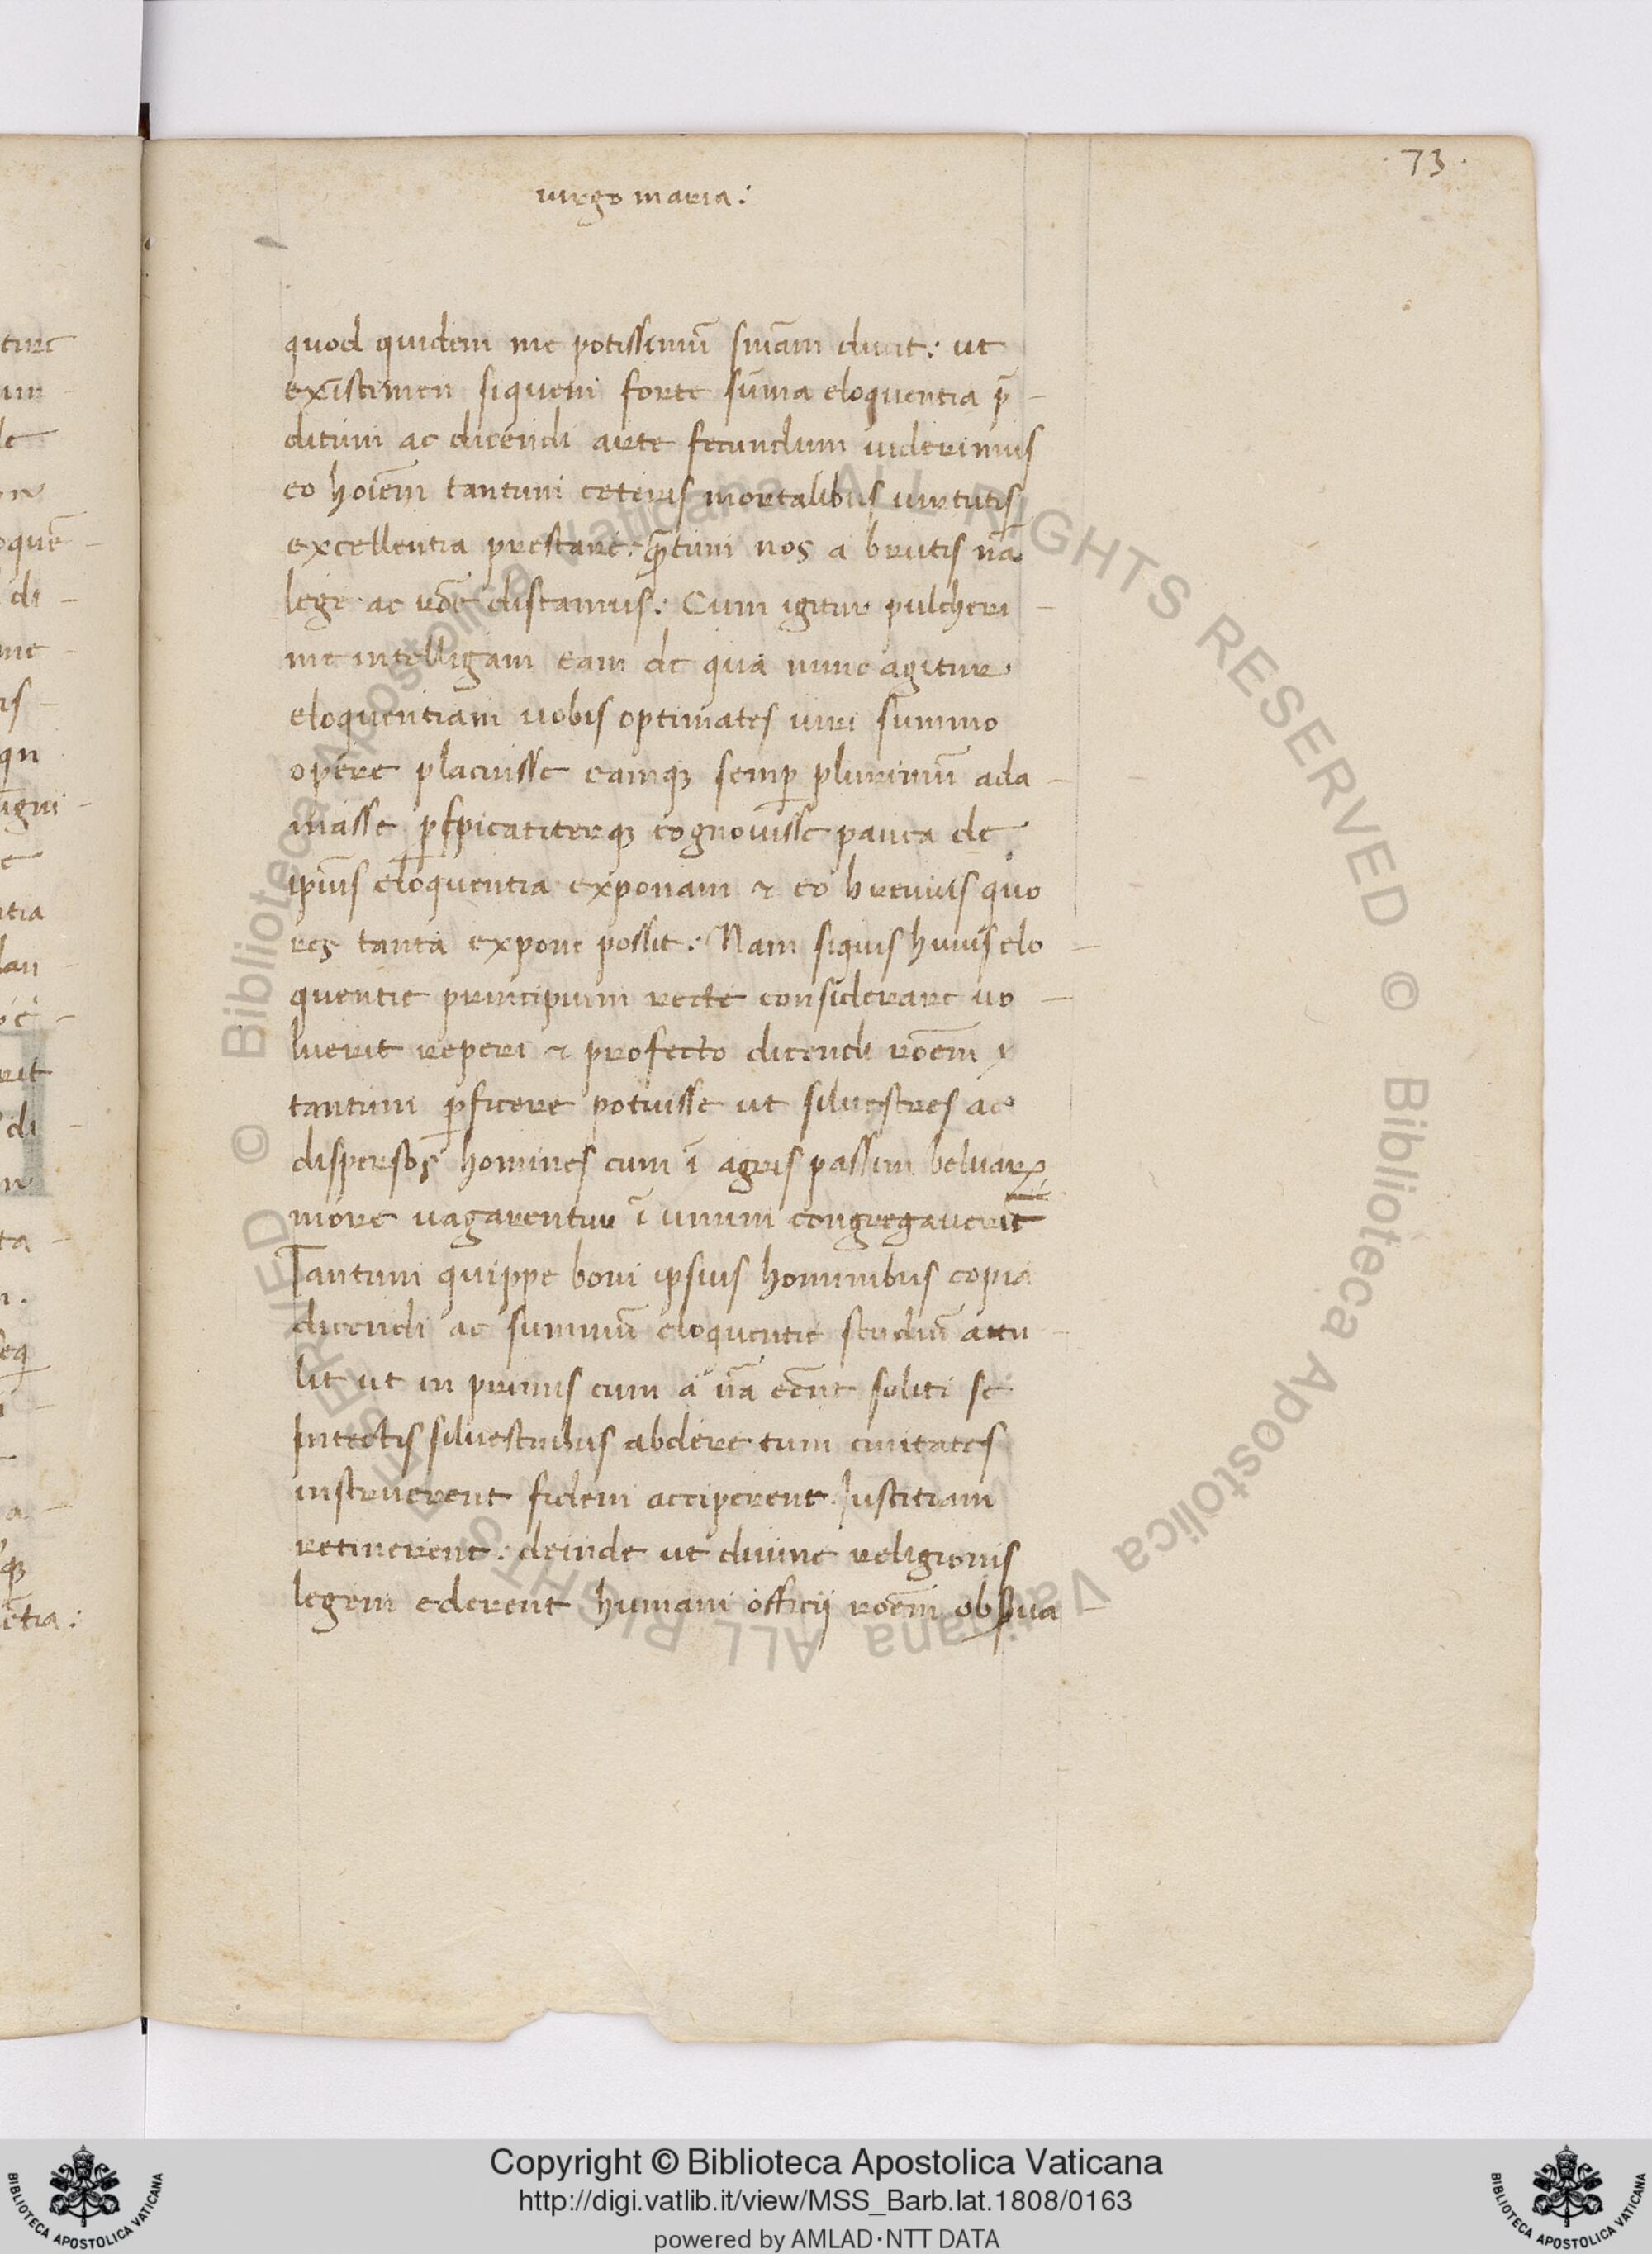 ·73·
uirgo maria:
quod quidem me potissimū sniam ducit: ut
existimen siquem forte sūma eloquentia p̄
ditum ac dicendi arte fecundum uiderimus
eo hoiem tantum ceteris mortalibus uirtutis
excellentia prestare: q̄tum nos a brutis nā
lege ac rōe distamus: Cum igitur pulcheri
me intelligam eam de qua nunc agitur
eloquentiam uobis optimates uiri summo
opere placuisse eamqꝫ semꝑ plurimū ada
masse ꝑspicatiterqꝫ cognouisse pauca de
ipius eloquentia exponam & eo breuius quo
res tanta exponi possit: Nam siquis huius elo
quentie principium recte considerare uo
luerit reperi & profecto dicendi rōem
tantum ꝑficere potuisse ut siluestres ac
dispersos homines cum ī agris passim beluaꝝ
more uagarentur ī unum congregauerit
Tantum quippe boni ipsius hominibus copia
dicendi ac summū eloquentie studiū attu
lit ut in primis cum a nā eēnt soliti se
Intectis siluestribus abdere tum ciuitates
instruerent fidem acciperent Iustitiam
retinerent: deinde ut diuine religionis
legem ederent humani officij rōem obẜua
Copyright © Biblioteca Apostolica Vaticana
http://digi.vatlib.it/view/MSS_Barb.lat.1808/0163
powered by AMLAD·NTT DATA